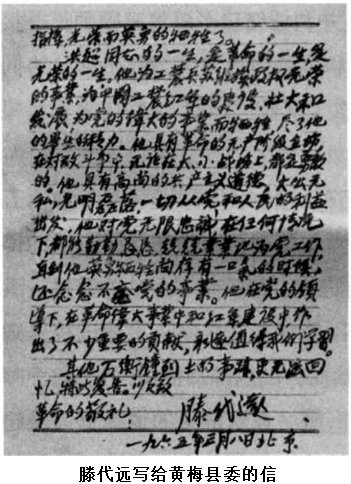 指挥，光荣而英勇的牺牲了。
洪超同志的一生，是革命的一生，是
光荣的一生，他为工农兵
的事业，为中国工农红军的建设、壮大和
发展，为党的伟大的事业而牺牲，尽了他
的毕生的精力。他具有革命的无产阶级立场，
在对敌斗争中，无论在大、小战场上，都是勇敢
的。他具有高尚的共产主义道德，大公无
私，光明磊落，一切从党和人民的利益
出发。他对党无限忠诚，在任何情况
下，都勤勤恳恳，兢兢业业地为党工作，
直到他英勇牺牲尚存有一口气的时候，
还念念不忘党的事业。他在党的领
导下，在革命伟大事业中和红军建设中作
出了不少重要的贡献，永远值得我们学习。
其他石衡钟烈士的事迹，更无法回
忆，特此复告。以致
革命的敬礼！ 滕代远
一九六五年三月八日北京
滕代远写给黄梅县委的信